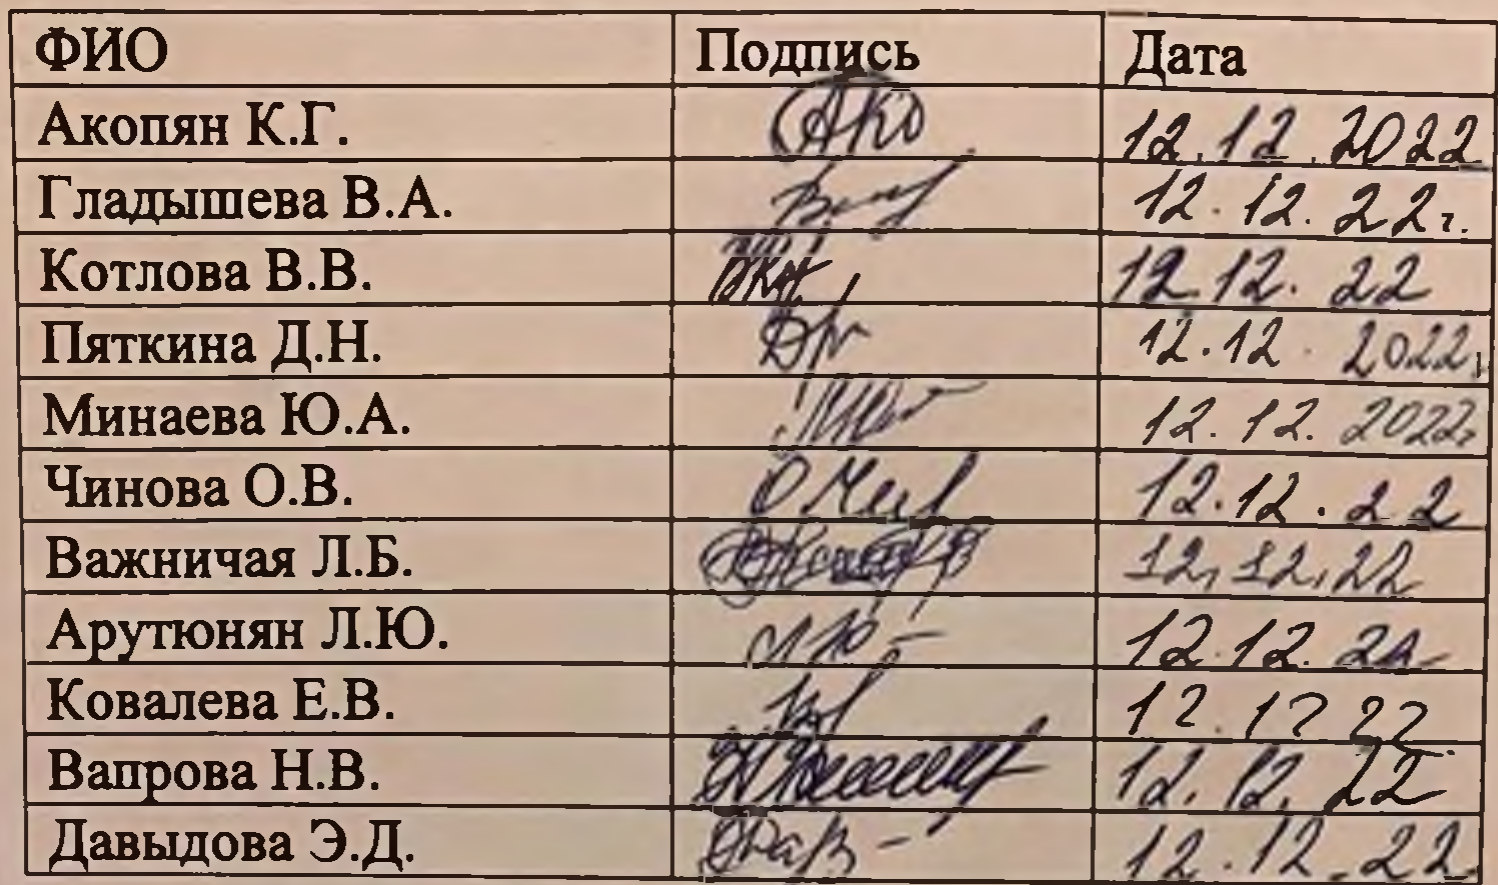 ФИО Подпись Дата
Акопян К.Г. Ако 12.12.2022
Гладышева В.А. 12.12.22г.
Котлова В.В. 12.12.22
Пяткина Д.Н. 12.12.2022г
Минаева Ю.А. 12.12.2022г
Чинова О.В. 12.12.22
Важничая Л.Б. 12.12.22
Арутюнян Л.Ю. 12.12.22
Ковалева Е.В. 12.12.22
Вапрова Н.В. 12.12.22
Давыдова Э.Д. 12.12.22